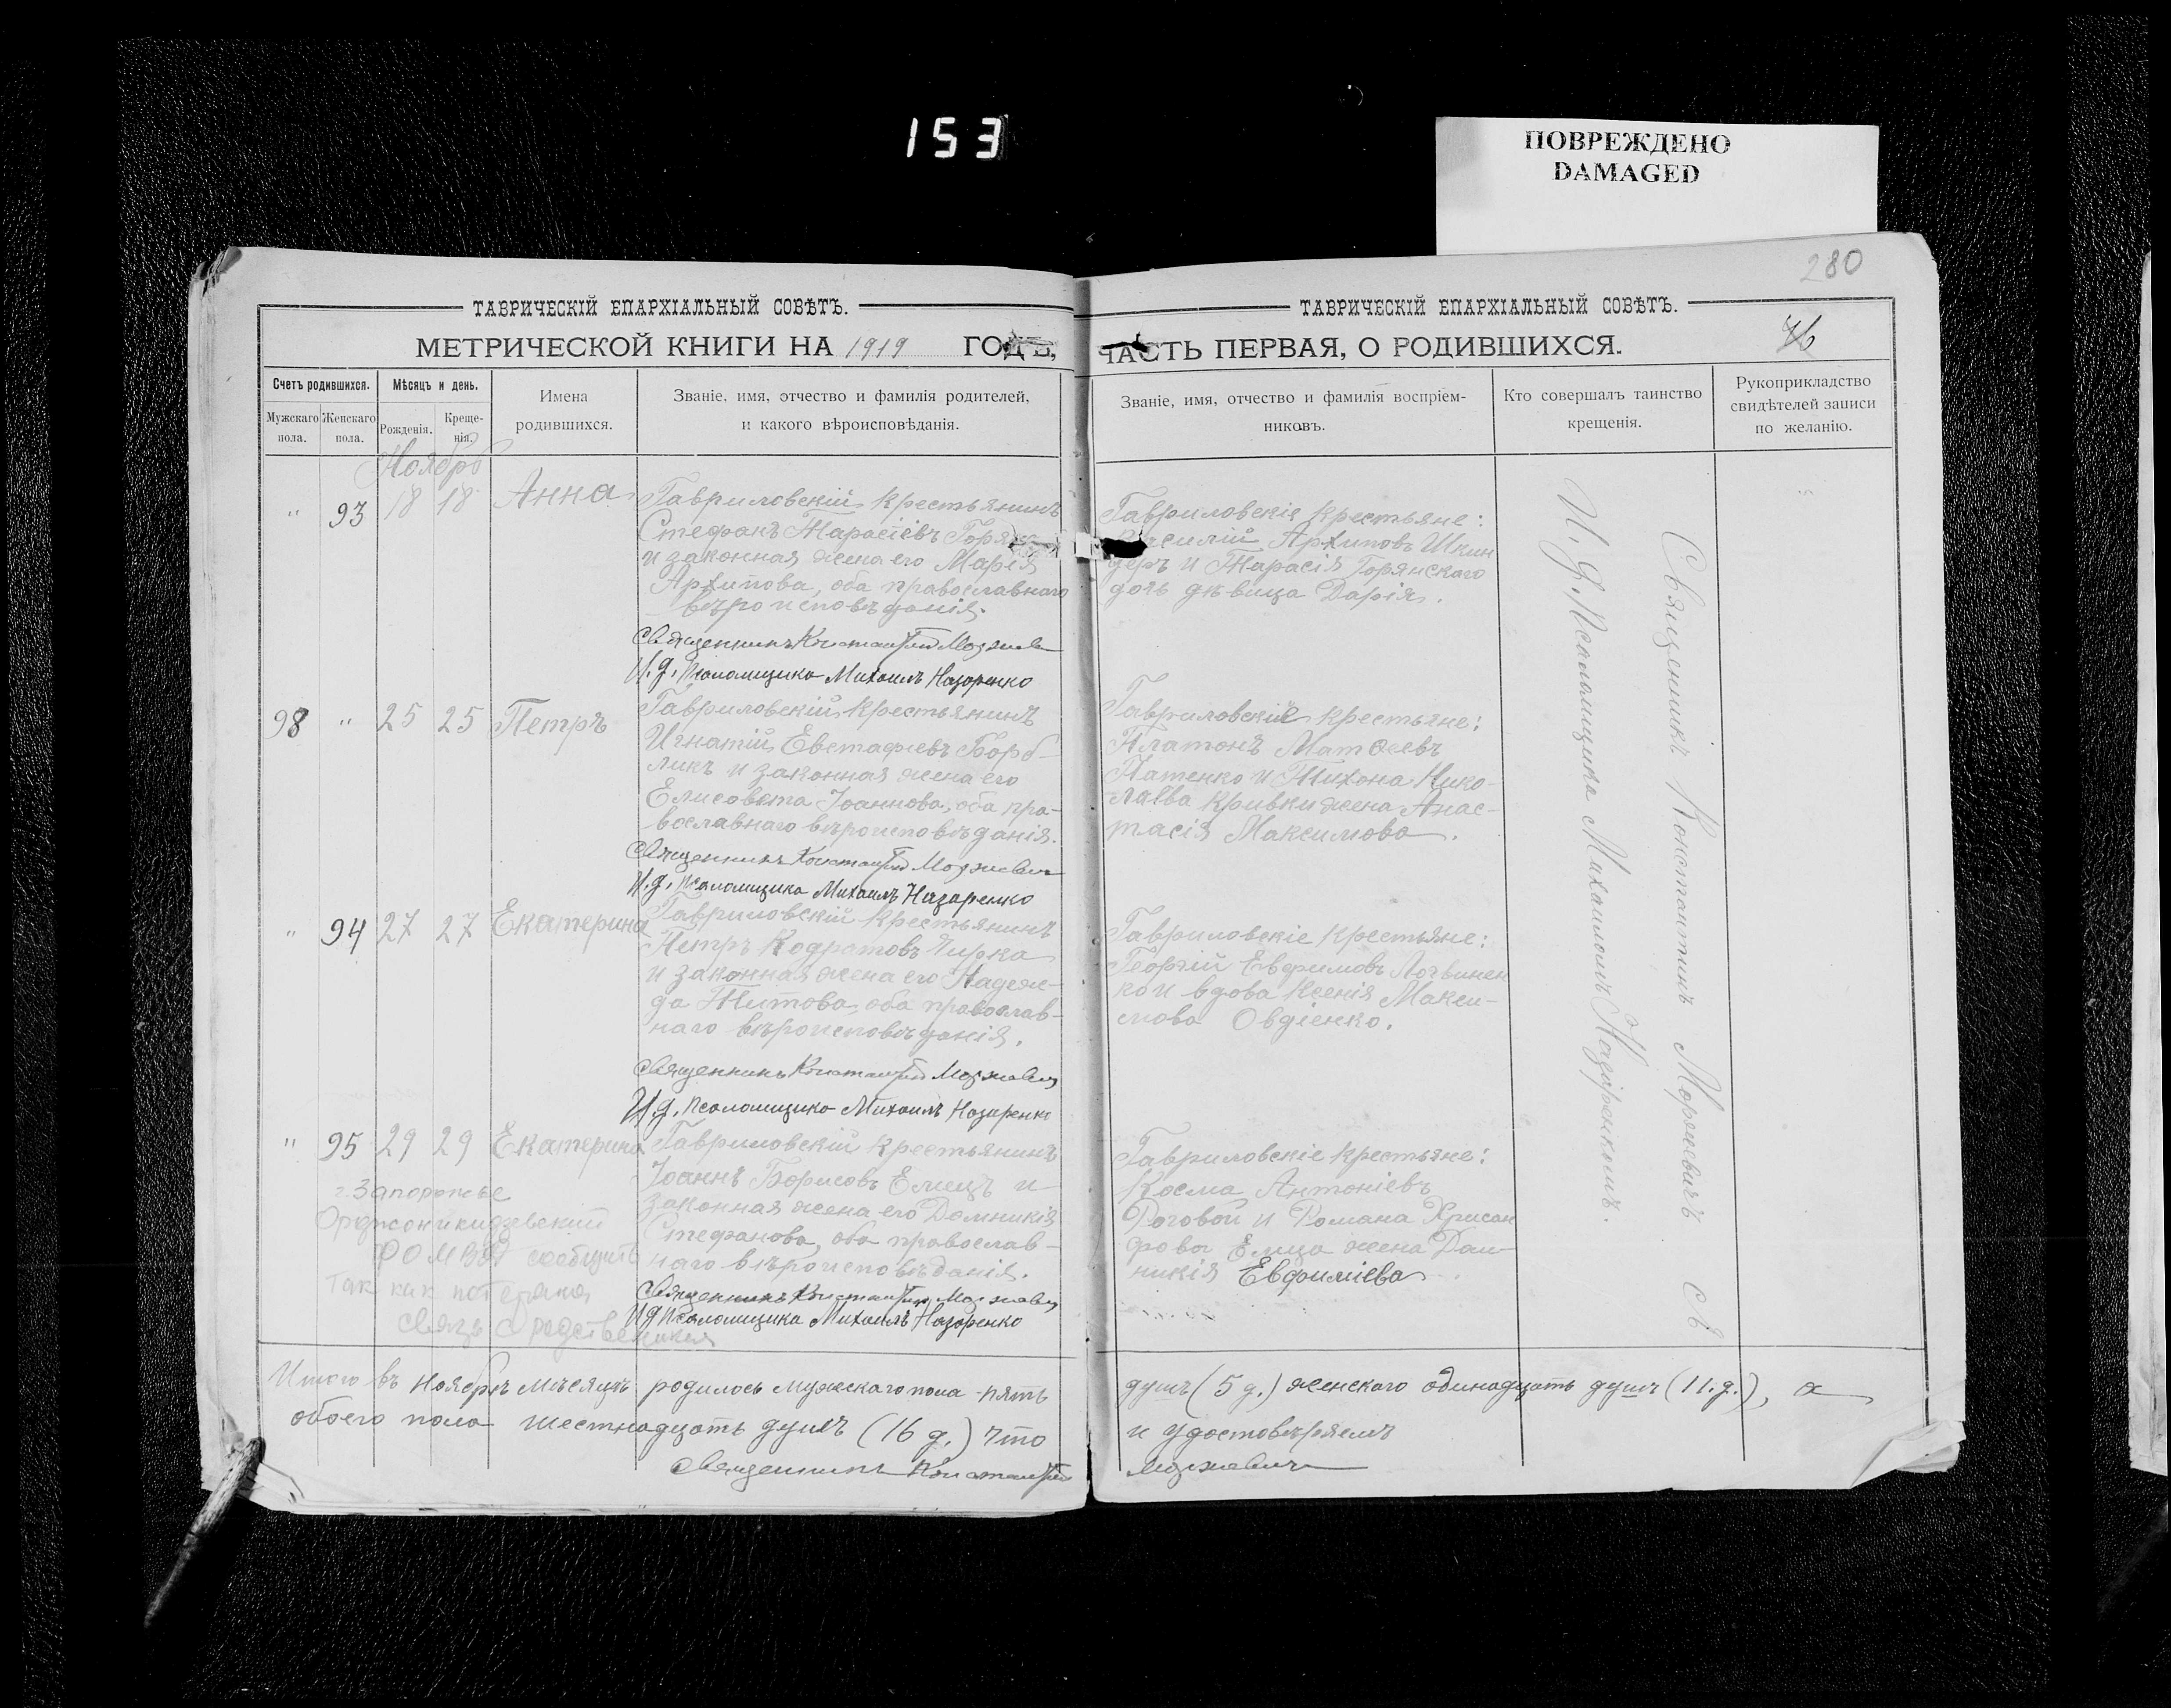 153
ПОВРЕЖДЕНО
DAMAGED
280
ТАВРИЧЕСКІЙ ЕПАРХІАЛЬНЫЙ СОВѢТЪ.
МЕТРИЧЕСКОЙ КНИГИ НА 1919 ГОДЪ,
Счетъ родившихся.
Мужскаго пола.
Женскаго пола.
Мѣсяцъ и день.
Рожденія.
Креще-
нія.
Имена
родившихся.
Званіе, имя, отчество и фамилія родителей,
и какого вѣроисповѣданія.
Ноябрь
" 93 18 18 Анна
Гавриловскій крестьянинъ
Стефанъ Тарасіевъ
и законная жена его Марія
Архипова, оба православнаго
вѣроисповѣданія.
Священникъ Константинъ
И.д. Псаломщика Михаилъ Назаренко
98 " 25 25 Петръ
Гавриловскій крестьянинъ
Игнатій Евстафіевъ
и законная жена его
Елисавета Іоаннова, оба пра-
вославнаго вѣроисповѣданія.
Священникъ Константинъ
И.д. Псаломщика Михаилъ Назаренко
" 94 27 27 Екатерина
Гавриловскій крестьянинъ
Петръ Кодратовъ
и законная жена его Надеж-
да Титова, оба православ-
наго вѣроисповѣданія.
Священникъ Константинъ
И.д. Псаломщика Михаилъ Назаренко
" 95 29 29 Екатерина
Гавриловскій крестьянинъ
Іоаннъ Борисовъ Емецъ и
законная жена его Домникія
Стефанова, оба православ-
наго вѣроисповѣданія.
Священникъ Константинъ
И.д. Псаломщика Михаилъ Назаренко
г. Запорожье
Орджоникидзевский
сообщить
так как потеряна
связь с
Итого въ Ноябрѣ мѣсяцѣ родилось мужескаго пола пять
обоего пола шестнадцать душъ (16 д.) что
Священникъ Константинъ
ТАВРИЧЕСКІЙ ЕПАРХІАЛЬНЫЙ СОВѢТЪ.
ЧАСТЬ ПЕРВАЯ, О РОДИВШИХСЯ.
Званіе, имя, отчество и фамилія воспріем-
никовъ.
Кто совершалъ таинство
крещенія.
Рукоприкладство
свидѣтелей записи
по желанію.
Гавриловскіе крестьяне:
Архиповъ Шкин
деръ и Тарасія Горянскаго
дочь дѣвица Дарія.
Гавриловскіе крестьяне:
Платонъ Матѳеевъ
Патенко и Тихона Нико-
лаева Кривки жена Анас-
тасія Максимова.
Гавриловскіе крестьяне:
Георгій Евфимовъ Логвинен
ко и вдова Ксенія Макси-
мова Овдіенко.
Гавриловскіе крестьяне:
Косма Антоніевъ
Роговой и Романа Хрисан
фова Емца жена Дом-
никія Евфиміева.
Священникъ Константинъ
И. д. Псаломщика Михаиломъ Назаренкомъ.
душъ (5 д.) женскаго одинадцать душъ (11.д.), а
и удостовѣряемъ